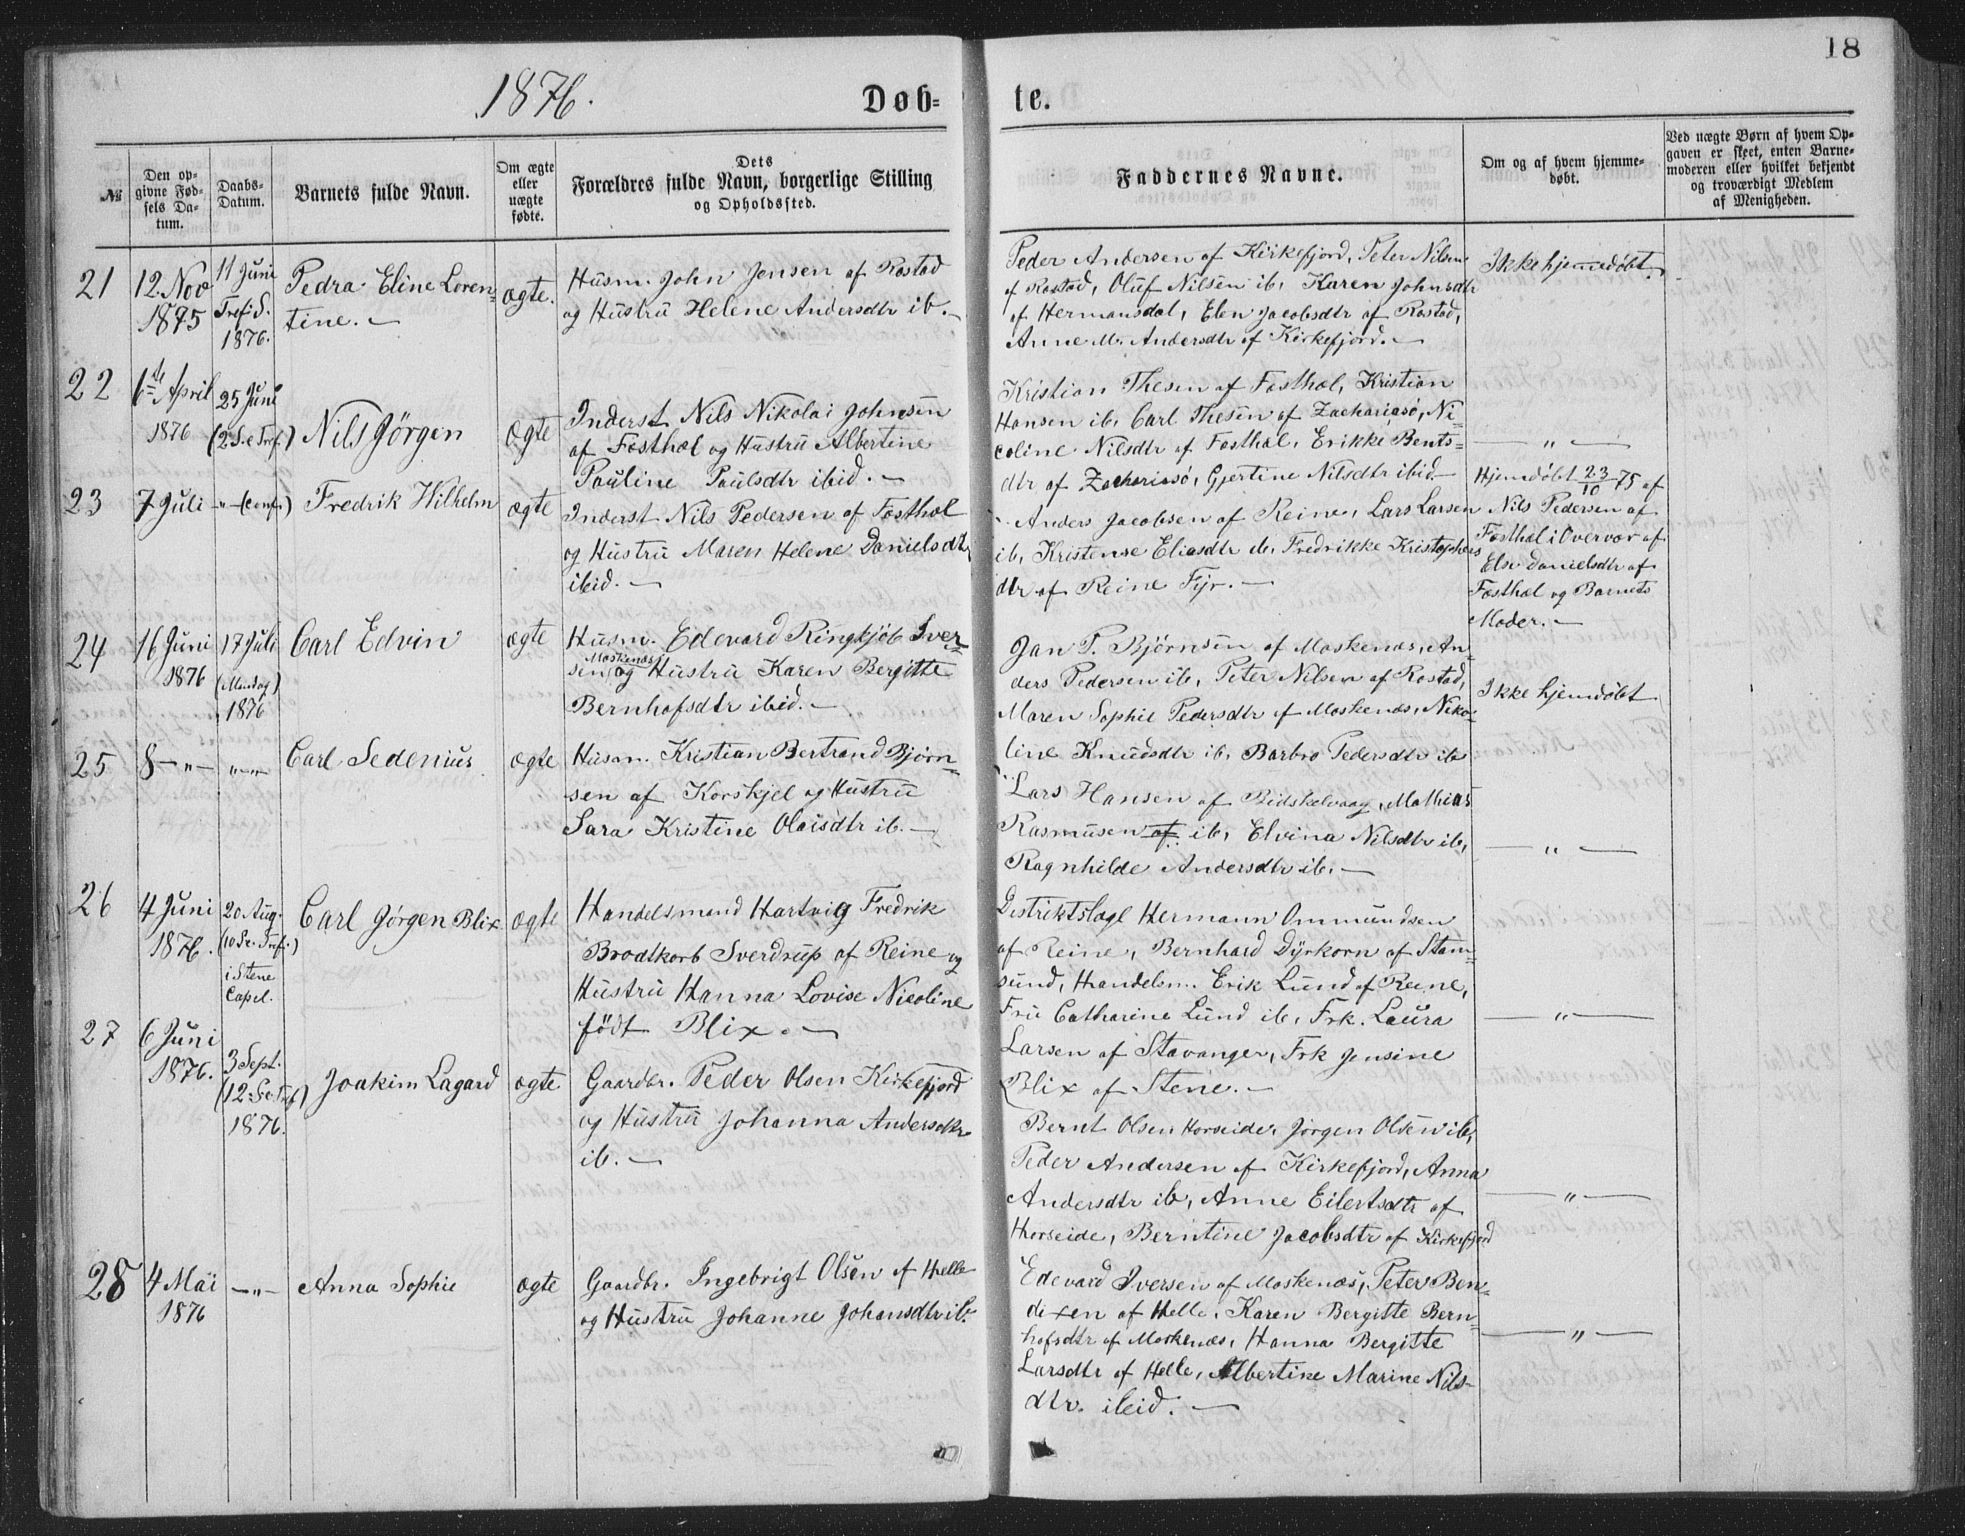 18
1876.
Döb-
te.
№
Den op-
givne Fød-
sels Da-
tum.
Daabs-
Datum.
Barnets fulde Navn.
Om ægte
eller
uægte
fødte.
Dets
Forældres fulde Navn, borgerlige Stilling
og Opholdssted.
Faddernes Navne.
Om og af hvem hjemme-
døbt.
Ved uægte Børn af hvem Op-
gaven er skeet, enten Barne-
moderen eller hvilket bekjendt
og troværdigt Medlem
af Menigheden.
21
12. Nov
1875
11 Juni
Tref: S.
1876.
Pedra Eline Loren-
tine. –
ægte.
Husm. John Jensen af Rostad
og Hustru Helene Andersdtr ib. –
Peder Andersen af Kirkefjord, Peter Nilsen
af Rostad, Oluf Nilsen ib, Karen Johnsdtr
af Hermansdal, Elen Jacobsdtr af Rostad,
Anne M. Andersdtr af Kirkefjord. –
Ikke hjemmedøbt.
22
6te April
1876
25 Juni
(2. S. e Tref.)
Nils Jørgen
ægte
Inderst Nils Nikolai Johnsen
af Fosthol og Hustru Albertine
Pauline Paulsdtr ibid. –
Kristian Thesen af Fosthol, Kristian
Hansen ib, Carl Thesen af Zachariasø, Ni
coline Nilsdtr af Fosthol, Erikke Bents-
dtr af Zachariasø, Gjertine Nilsdtr ibid –
— " —
23
7 Juli
— " — (conf.)
Fredrik Wilhelm
ægte
Inderst Nils Pedersen af Fosthol
og Hustru Maren Helene Danielsdtr
ibid. –
Anders Jacobsen af Reine, Lars Larsen
ib, Kristense Eliasdtr ib, Fredrikke Kristophers
dtr af Reine Fyr. –
Hjemdøbt 23/10 75 af
Nils Pedersen af
Fosthol i Overvær af
Else Danielsdtr af
Fosthol og Barnets
Moder. –
24
16 Juni
1876
17 Juli
(Mandag)
1876
Carl Edvin
ægte
Husm. Edevard Ringkjøb Iver-
sen Moskenæs og Hustru Karen Bergitte
Bernhofsdtr ibid. –
Jan P. Bjørnsen af Moskenæs, An-
ders Pedersen ib, Peter Nilsen af Rostad,
Maren Sophie Pedersdtr af Moskenæs, Niko-
line Knudsdtr ib, Barbro Pedersdtr ib
Ikke hjemdøbt
25
8 — " —
" — " —
Carl Sedenius
ægte
Husm. Kristian Bertrand Bjørn-
sen af Korskjel og Hustru
Sara Kristine Olaisdtr ib. –
Lars Hansen af Bidskelvaag, Mathias
Rasmusen af ib, Elvina Nilsdtr ib,
Ragnhilde Andersdtr ib. –
— " —
26
4 Juni
1876.
20 Aug.
(10 S. e. Tref.)
i Stene
Capel.
Carl Jørgen Blix
ægte
Handelsmand Hartvig Fredrik
Brodtkorb Sverdrup af Reine og
Hustru Hanna Lovise Nicoline
født Blix. –
Distriktslæge Hermann Ommundsen
af Reine, Bernhard Dyrkorn af Stam-
sund, Handelsm. Erik Lund af Reine,
Fru Catharine Lund ib, Frk. Laura
Larsen af Stavanger, Frk Jensine
Blix af Stene. –
— " —
27
6 Juni
1876.
3 Sept.
(12 S. e. Tref.)
1876.
Joakim Lagard
ægte
Gaardbr. Peder Olsen Kirkefjord
og Hustru Johanna Andersdtr
ib. –
Bernt Olsen Horseide, Jørgen Olsen ib,
Peder Andersen af Kirkefjord, Anna
Andersdtr ib, Anne Eilertsdtr af
Horseide, Berntine Jacobsdtr af Kirkefjord
— " —
28
4 Mai
1876
— " —
Anna Sophie
ægte
Gaardbr. Ingebrigt Olsen af Helle
og Hustru Johanne Johansdtr ib.
Edevard Iversen af Moskenæs, Peter Ben-
dixen af Helle, Karen Bergitte Bern-
hofsdtr af Moskenæs, Hanna Bergitte
Larsdtr af Helle, Albertine Marine Nils-
dtr. ibid. –
— " —